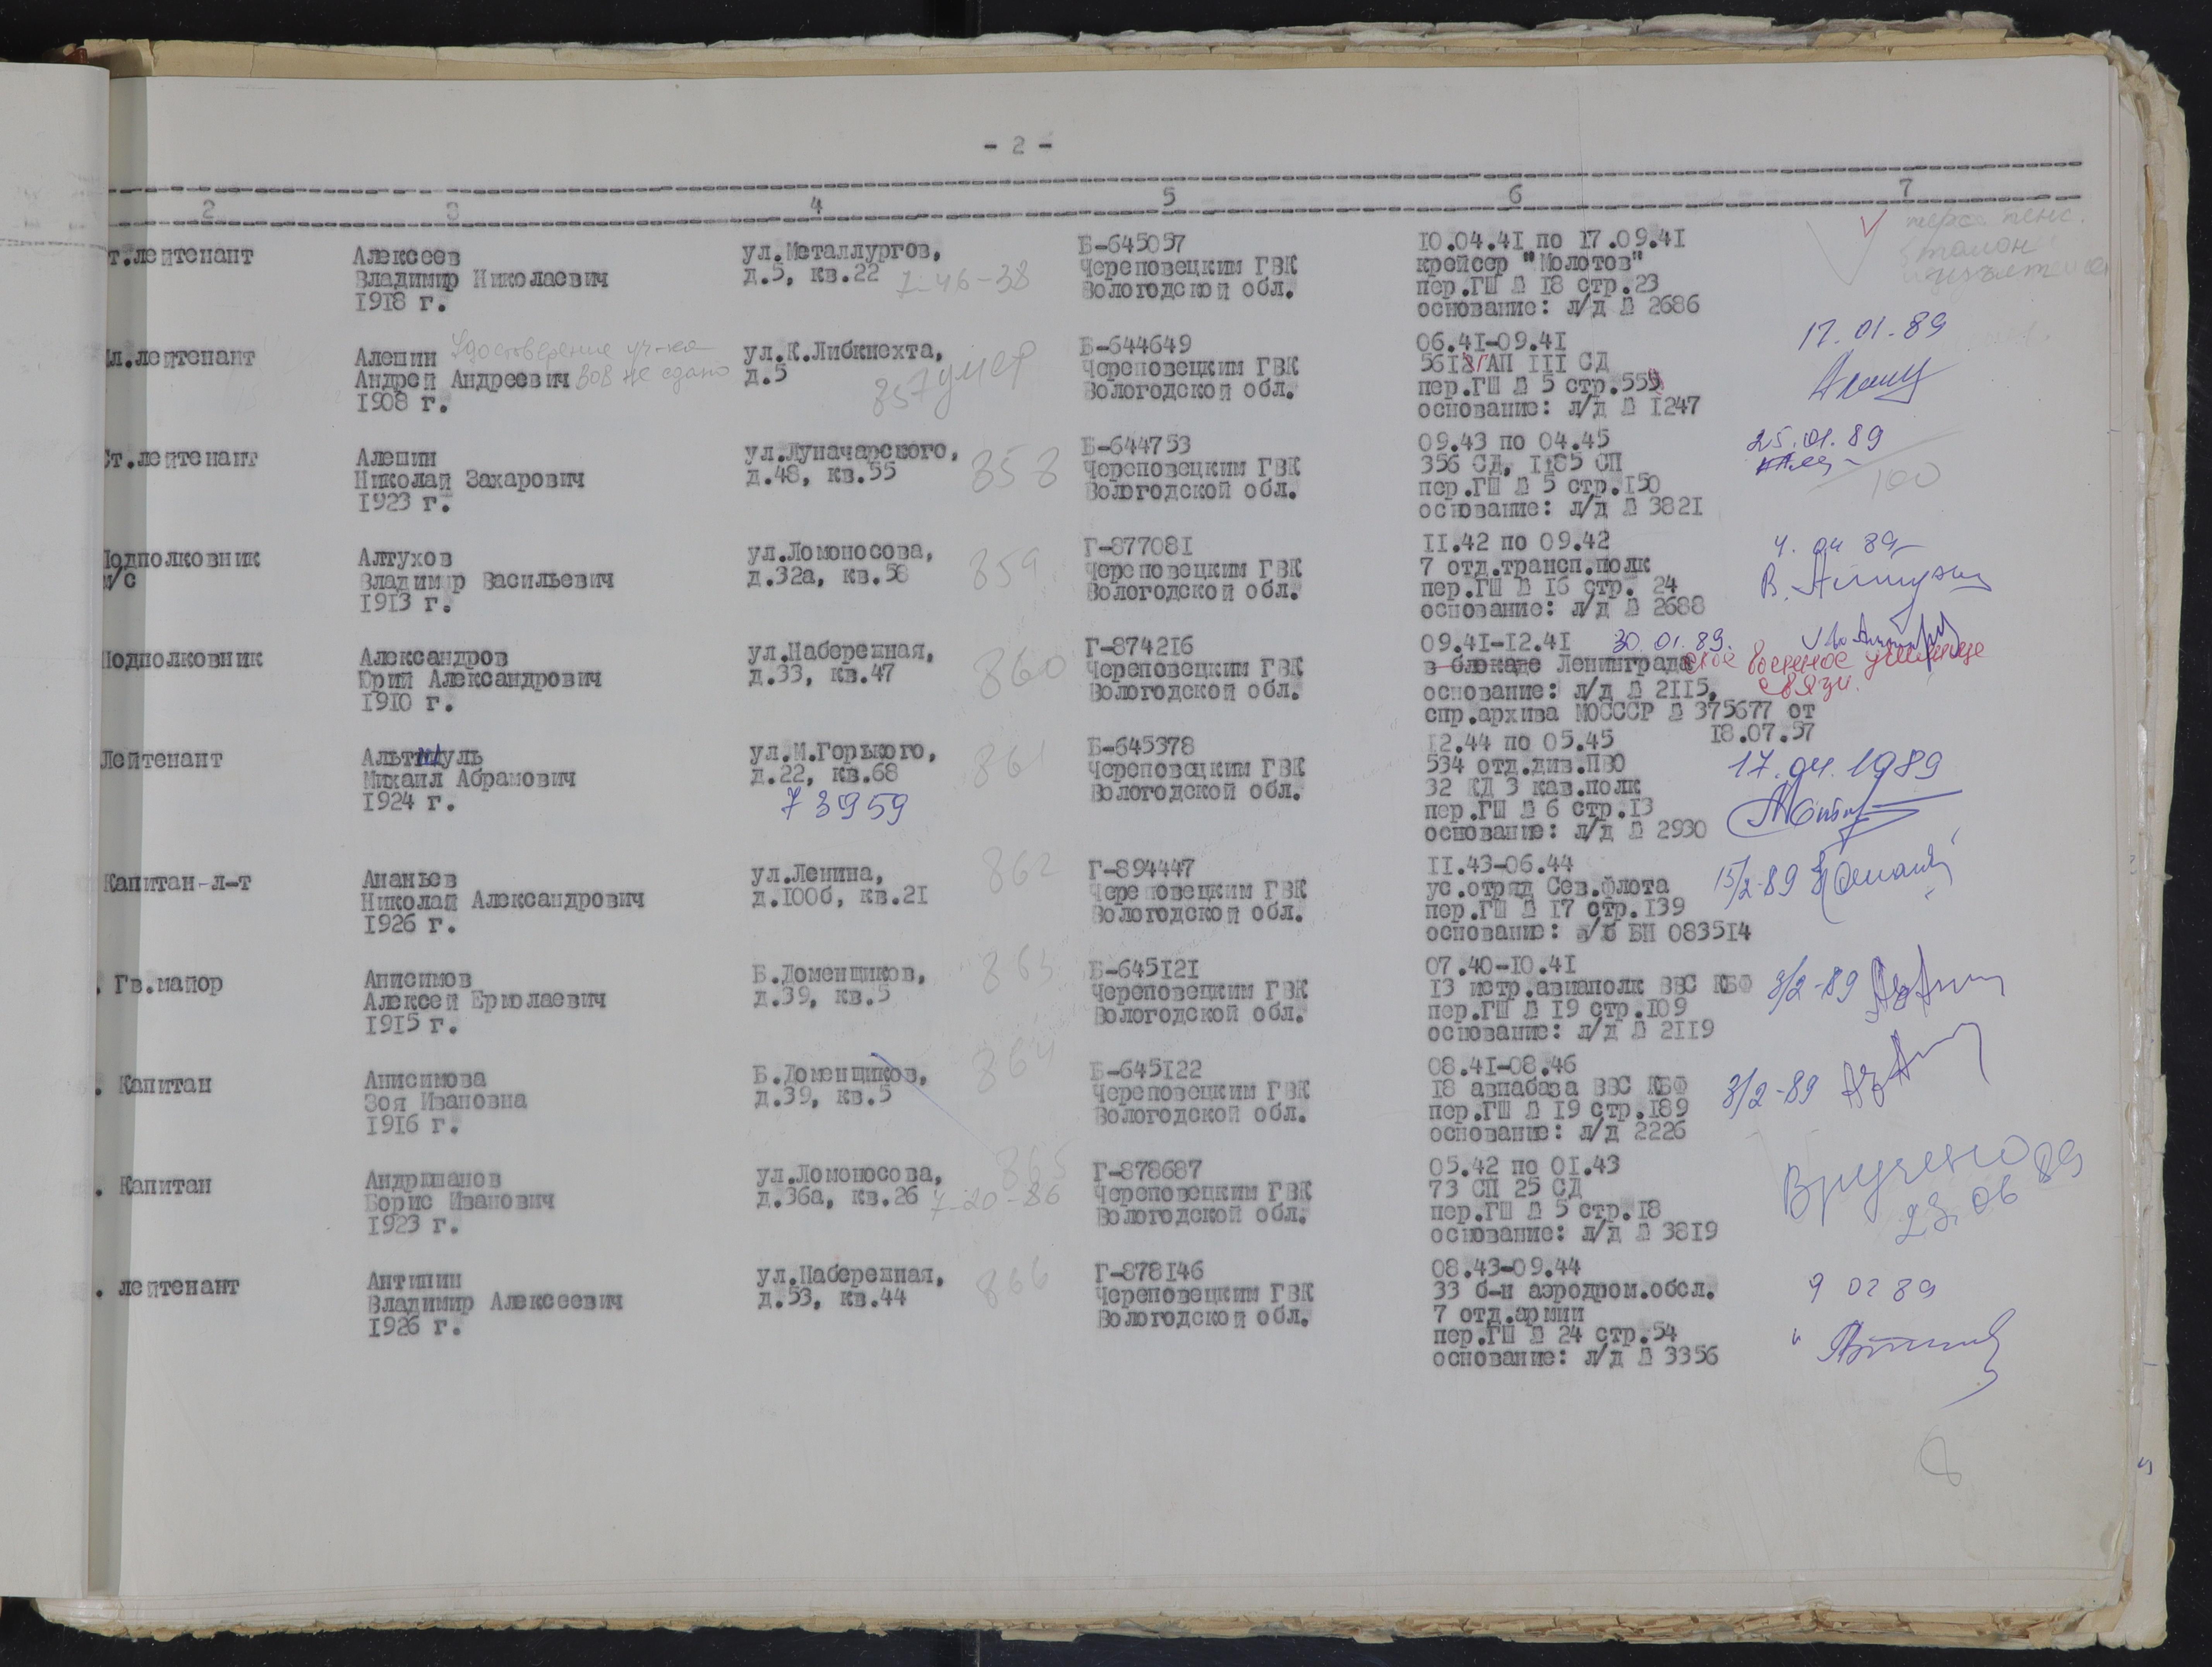 - 2 -
2 3 4 5 6 7
т.лейтенант
Алексеев
Владимир Николаевич
1918 г.
ул.Металлургов,
д.5, кв.22 7-46-38
Б-645057
Череповецким ГВК
Вологодской обл.
10.04.41 по 17.09.41
крейсер "Молотов"
пер.ГШ № 18 стр.23
основание: л/д № 2686
талон
л.лейтенант
Алешин Удостоверение уч-ка
Андрей Андреевич ВОВ не сдано
1908 г.
ул.К.Либкнехта,
д.5
857 умер
Б-644649
Череповецким ГВК
Вологодской обл.
06.41-09.41
561 АП 111 СД
пер.ГШ № 5 стр.555
основание: л/д № 1247
17.01.89
Ст.лейтенант
Алешин
Николай Захарович
1923 г.
ул.Луначарского,
д.48, кв.55
858
Б-644753
Череповецким ГВК
Вологодской обл.
09.43 по 04.45
356 СД, 1185 СП
пер.ГШ № 5 стр.150
основание: л/д № 3821
25.01.89
100
Подполковник
м/с
Алтухов
Владимир Васильевич
1913 г.
ул.Ломоносова,
д.32а, кв.58
859
Г-877081
Череповецким ГВК
Вологодской обл.
11.42 по 09.42
7 отд.трансп.полк
пер.ГШ № 16 стр. 24
основание: л/д № 2688
4. 04 89
Подполковник
Александров
Юрий Александрович
1910 г.
ул.Набережная,
д.33, кв.47
860
Г-874216
Череповецким ГВК
Вологодской обл.
09.41-12.41 30.01.89.
в блокаде Ленинградское военное училище
связи.
основание: л/д № 2115,
спр.архива МОСССР № 375677 от
18.07.57
Лейтенант
Альтшуль
Михаил Абрамович
1924 г.
ул.М.Горького,
д.22, кв.68
73959
861
Б-645378
Череповецким ГВК
Вологодской обл.
12.44 по 05.45
534 отд.див.ПВО
32 КД 3 кав.полк
пер.ГШ № 6 стр.13
основание: л/д № 2930
17.04.1989
Капитан-л-т
Ананьев
Николай Александрович
1926 г.
ул.Ленина,
д.100б, кв.21
862
Г-894447
Череповецким ГВК
Вологодской обл.
11.43-06.44
ус.отряд Сев.флота
пер.ГШ № 17 стр.139
основание: в/б БН 083514
15/2-89
. Гв.майор
Анисимов
Алексей Ермолаевич
1915 г.
Б.Доменщиков,
д.39, кв.5
863
Б-645121
Череповецким ГВК
Вологодской обл.
07.40-10.41
13 истр.авиаполк ВВС КБФ
пер.ГШ № 19 стр.109
основание: л/д № 2119
3/2-89
. Капитан
Анисимова
Зоя Ивановна
1916 г.
Б.Доменщиков,
д.39, кв.5
864
Б-645122
Череповецким ГВК
Вологодской обл.
08.41-08.46
18 авиабаза ВВС КБФ
пер.ГШ № 19 стр.189
основание: л/д 2226
3/2-89
. Капитан
Андрианов
Борис Иванович
1923 г.
ул.Ломоносова,
д.36а, кв.26 7-20-86
865
Г-878687
Череповецким ГВК
Вологодской обл.
05.42 по 01.43
73 СП 25 СД
пер.ГШ № 5 стр.18
основание: л/д № 3819
Вручено
23.06 89
. лейтенант
Антипин
Владимир Алексеевич
1926 г.
ул.Набережная,
д.53, кв.44
866
Г-878146
Череповецким ГВК
Вологодской обл.
08.43-09.44
33 б-н аэродром.обсл.
7 отд.армии
пер.ГШ № 24 стр.54
основание: л/д № 3356
9 02 89
8